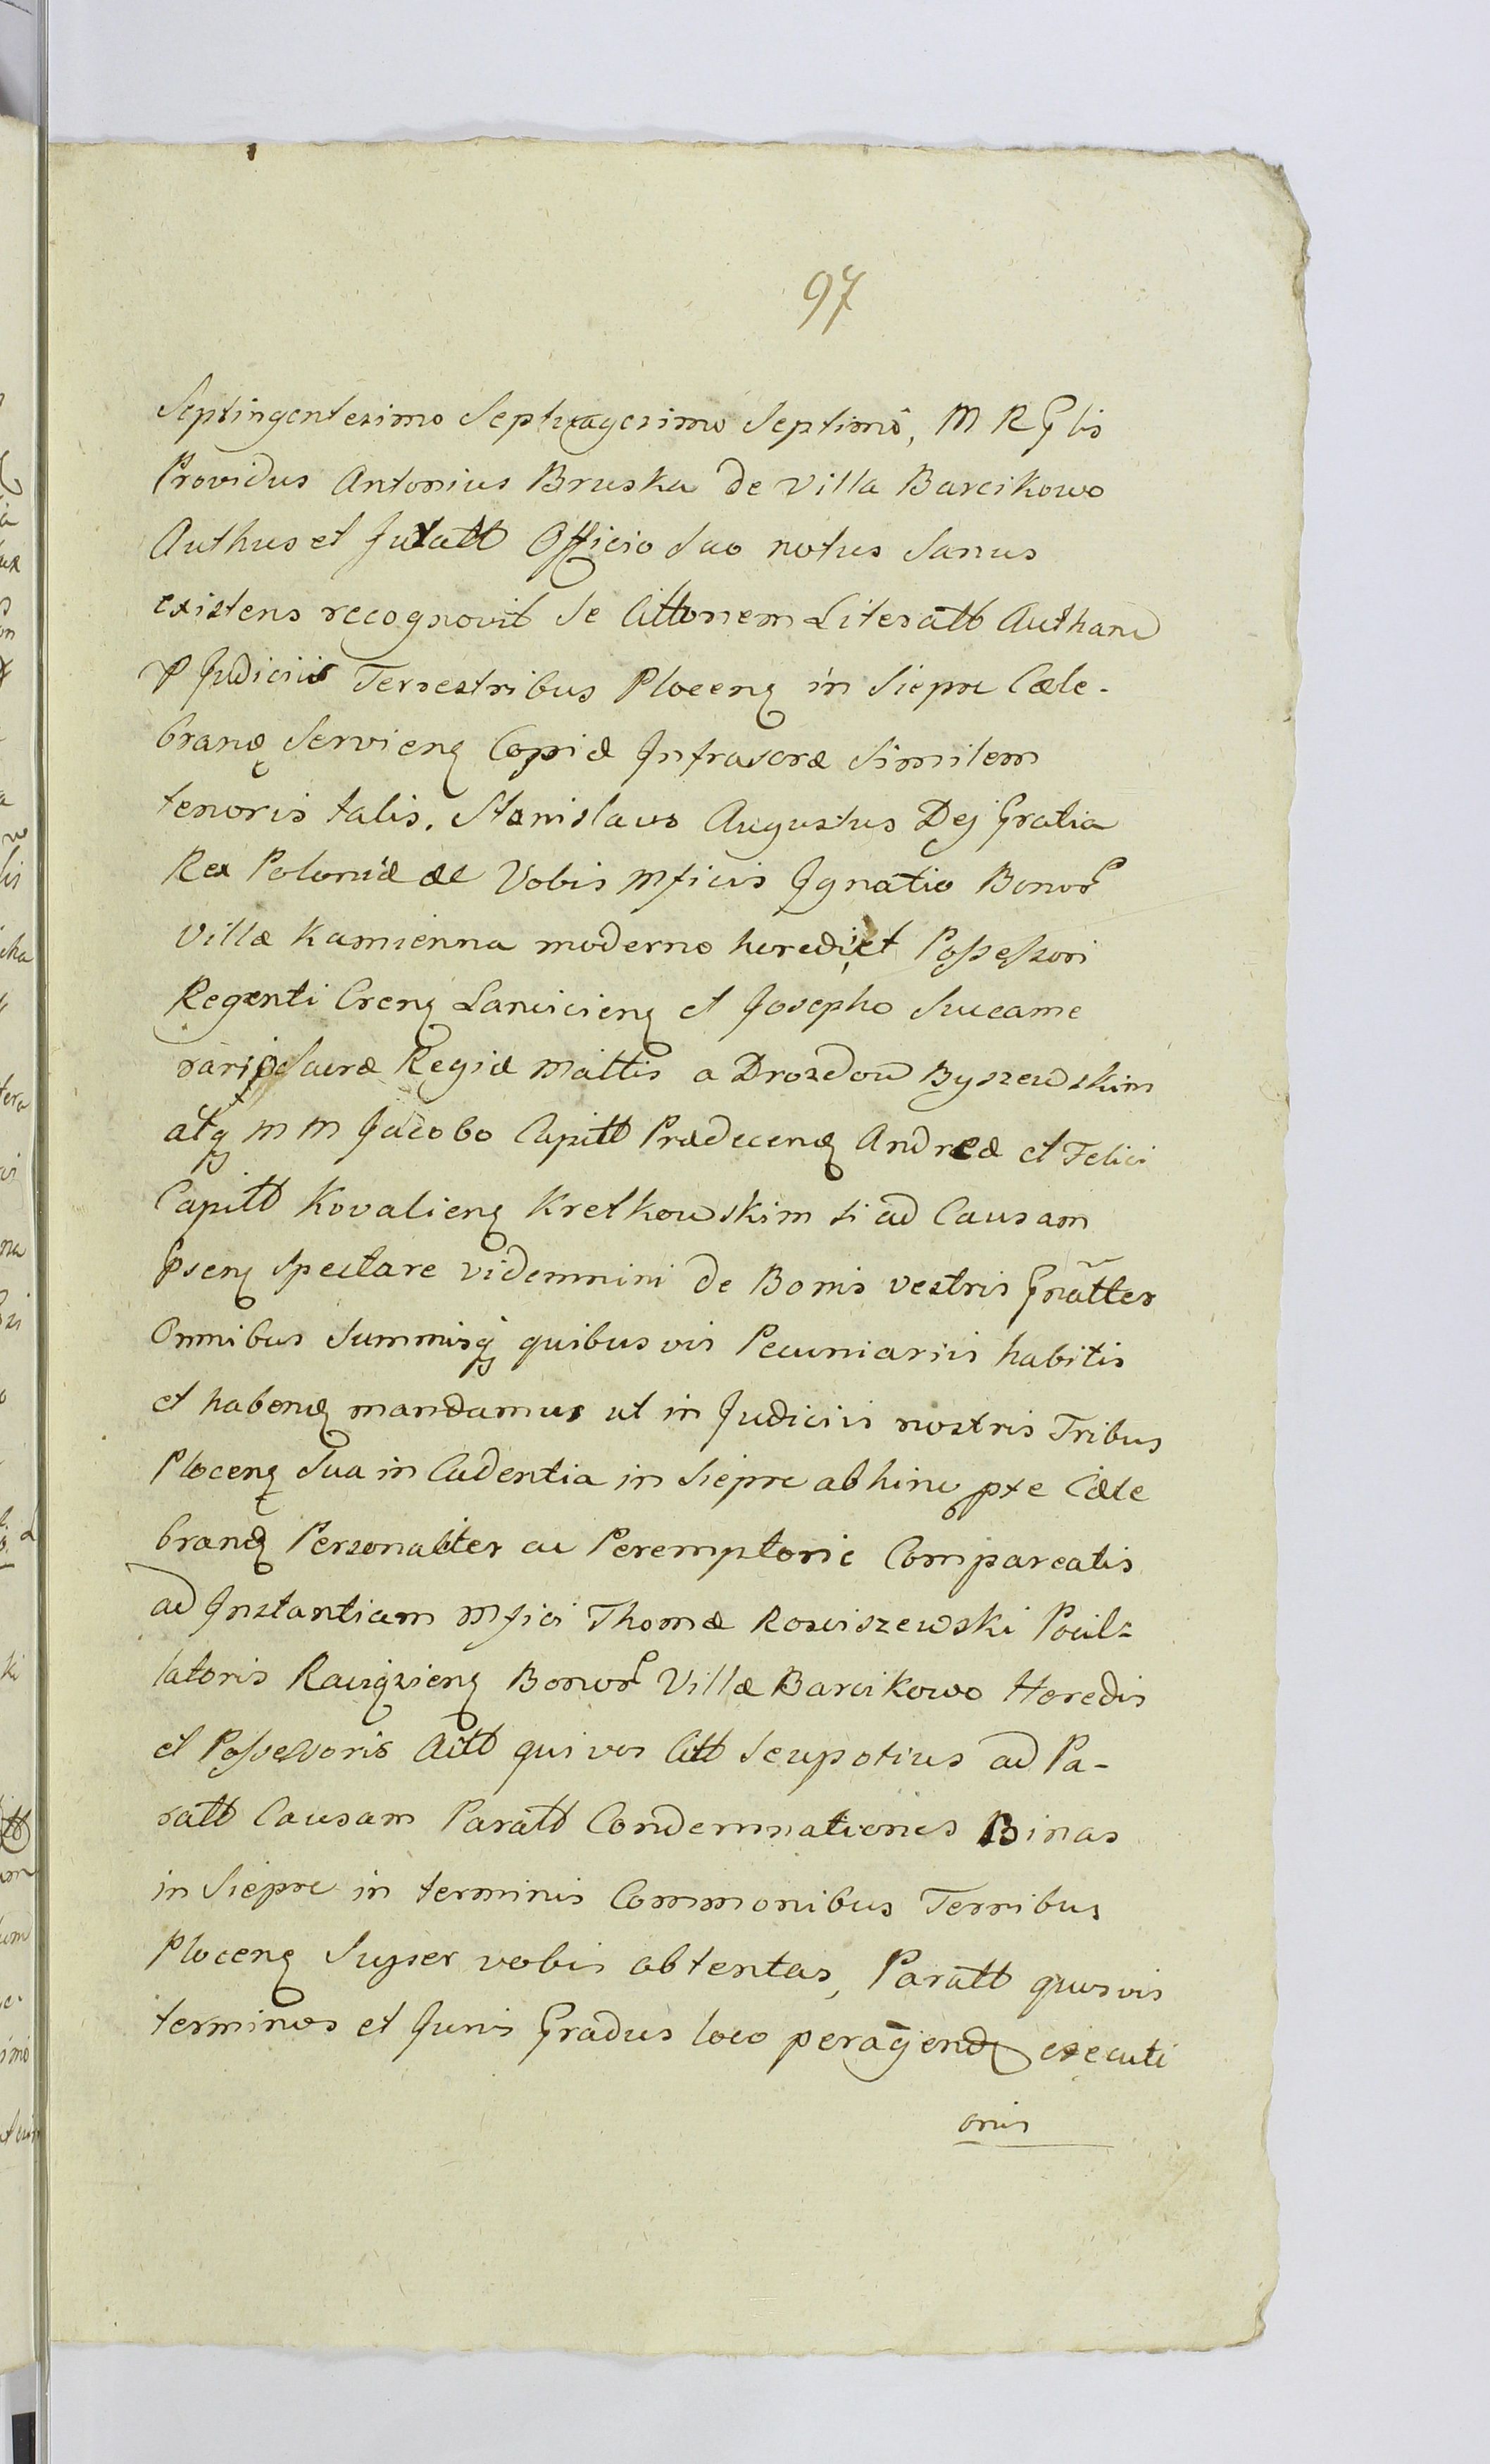 97
Septingentesimo Septuagesimo Septimô, M R Gtis
Providus Antonius Bruska de Villa Barcikowo
Authus et Juratt Officio Suo notus Sanus
existens recognovit Se Cittonem Literatt Autham
p Judiciis Terrestribus Plocenq in Siepre Cæle-
branq Servienq Copiæ Infrascræ Similem
tenoris talis. Stanislaus Augustus Dej Gratia
Rex Poloniæ &c Vobis Mficis Ignatio Bonor
Villæ Kamienna moderno heredi et Possessori
Regenti Crenq Lancicienq et Josepho Succame
rarijs Sacræ Regiæ Mattis a Drozdow Byszewskim
atq M M Jacobo Capitt Prædecenq Andreæ et Felici
Capitt Kovalienq Kretkowskim si ad Causam
Psenq Spectare videmnini de Bonis vestris Gnatter
Omnibus Summisq quibusvis Pecuniariis habitis
et habenq mandamus ut in Judiciis nostris Tribus
Plocenq Sua in Cadentia in Siepre abhinc pxe Cæle
branq Personaliter ac Peremptorie Compareatis
ad Instantiam Mfici Thomæ Rosciszewski Pocil-
latoris Raciązienq Bonor Villæ Barcikowo Heredis
et Possessoris Actt qui vos Citt Seupotius ad Pa-
ratt Causam Paratt Condemnationes Binas
in Siepre in terminis Commonibus Terribus
Plocenq Super vobis obtentas, Paratt quosvis
terminos et Juris Gradus loco peragend executi
onis